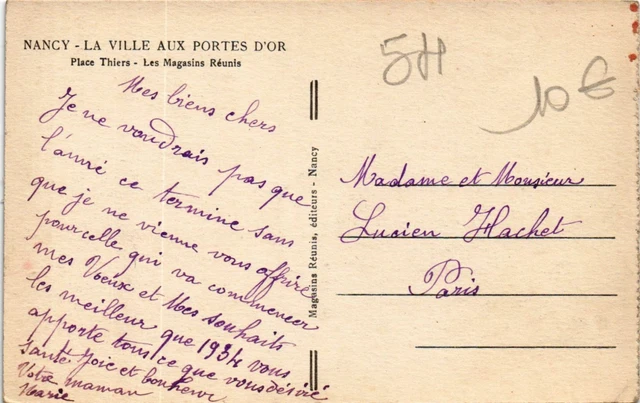 NANCY - LA VILLE AUX PORTES D'OR
Place Thiers - Les Magasins Réunis
Mes biens chers
Je ne voudrais pas que
l'anné ce termine sans
que je ne vienne vous offrire
pourcelle qui va commencer
mes Vœux et Mes souhaits
les meilleur que 1934 vous
apporte tous ce que vous désiré
santé Joie et bonheur
Votre maman
Marie
Magasins Réunis, éditeurs - Nancy
54
10 €
Madame et Monsieur
Lucien Hachet
Paris